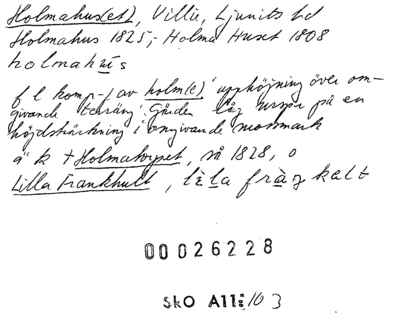 Holmahus(et), Villie, Ljunits hd
Holmahus 1825; Holma Huset 1808
holmahùs
f l komp-f av holm(e) 'upphöjning över om-
givande terräng'. Gården låg urspr på en
höjdsträckning i omgivande mossmark
ä k † Holmatorpet, så 1828, o
Lilla Frankhult, lìla fràŋkalt
00026228
SkO A11: 10 3